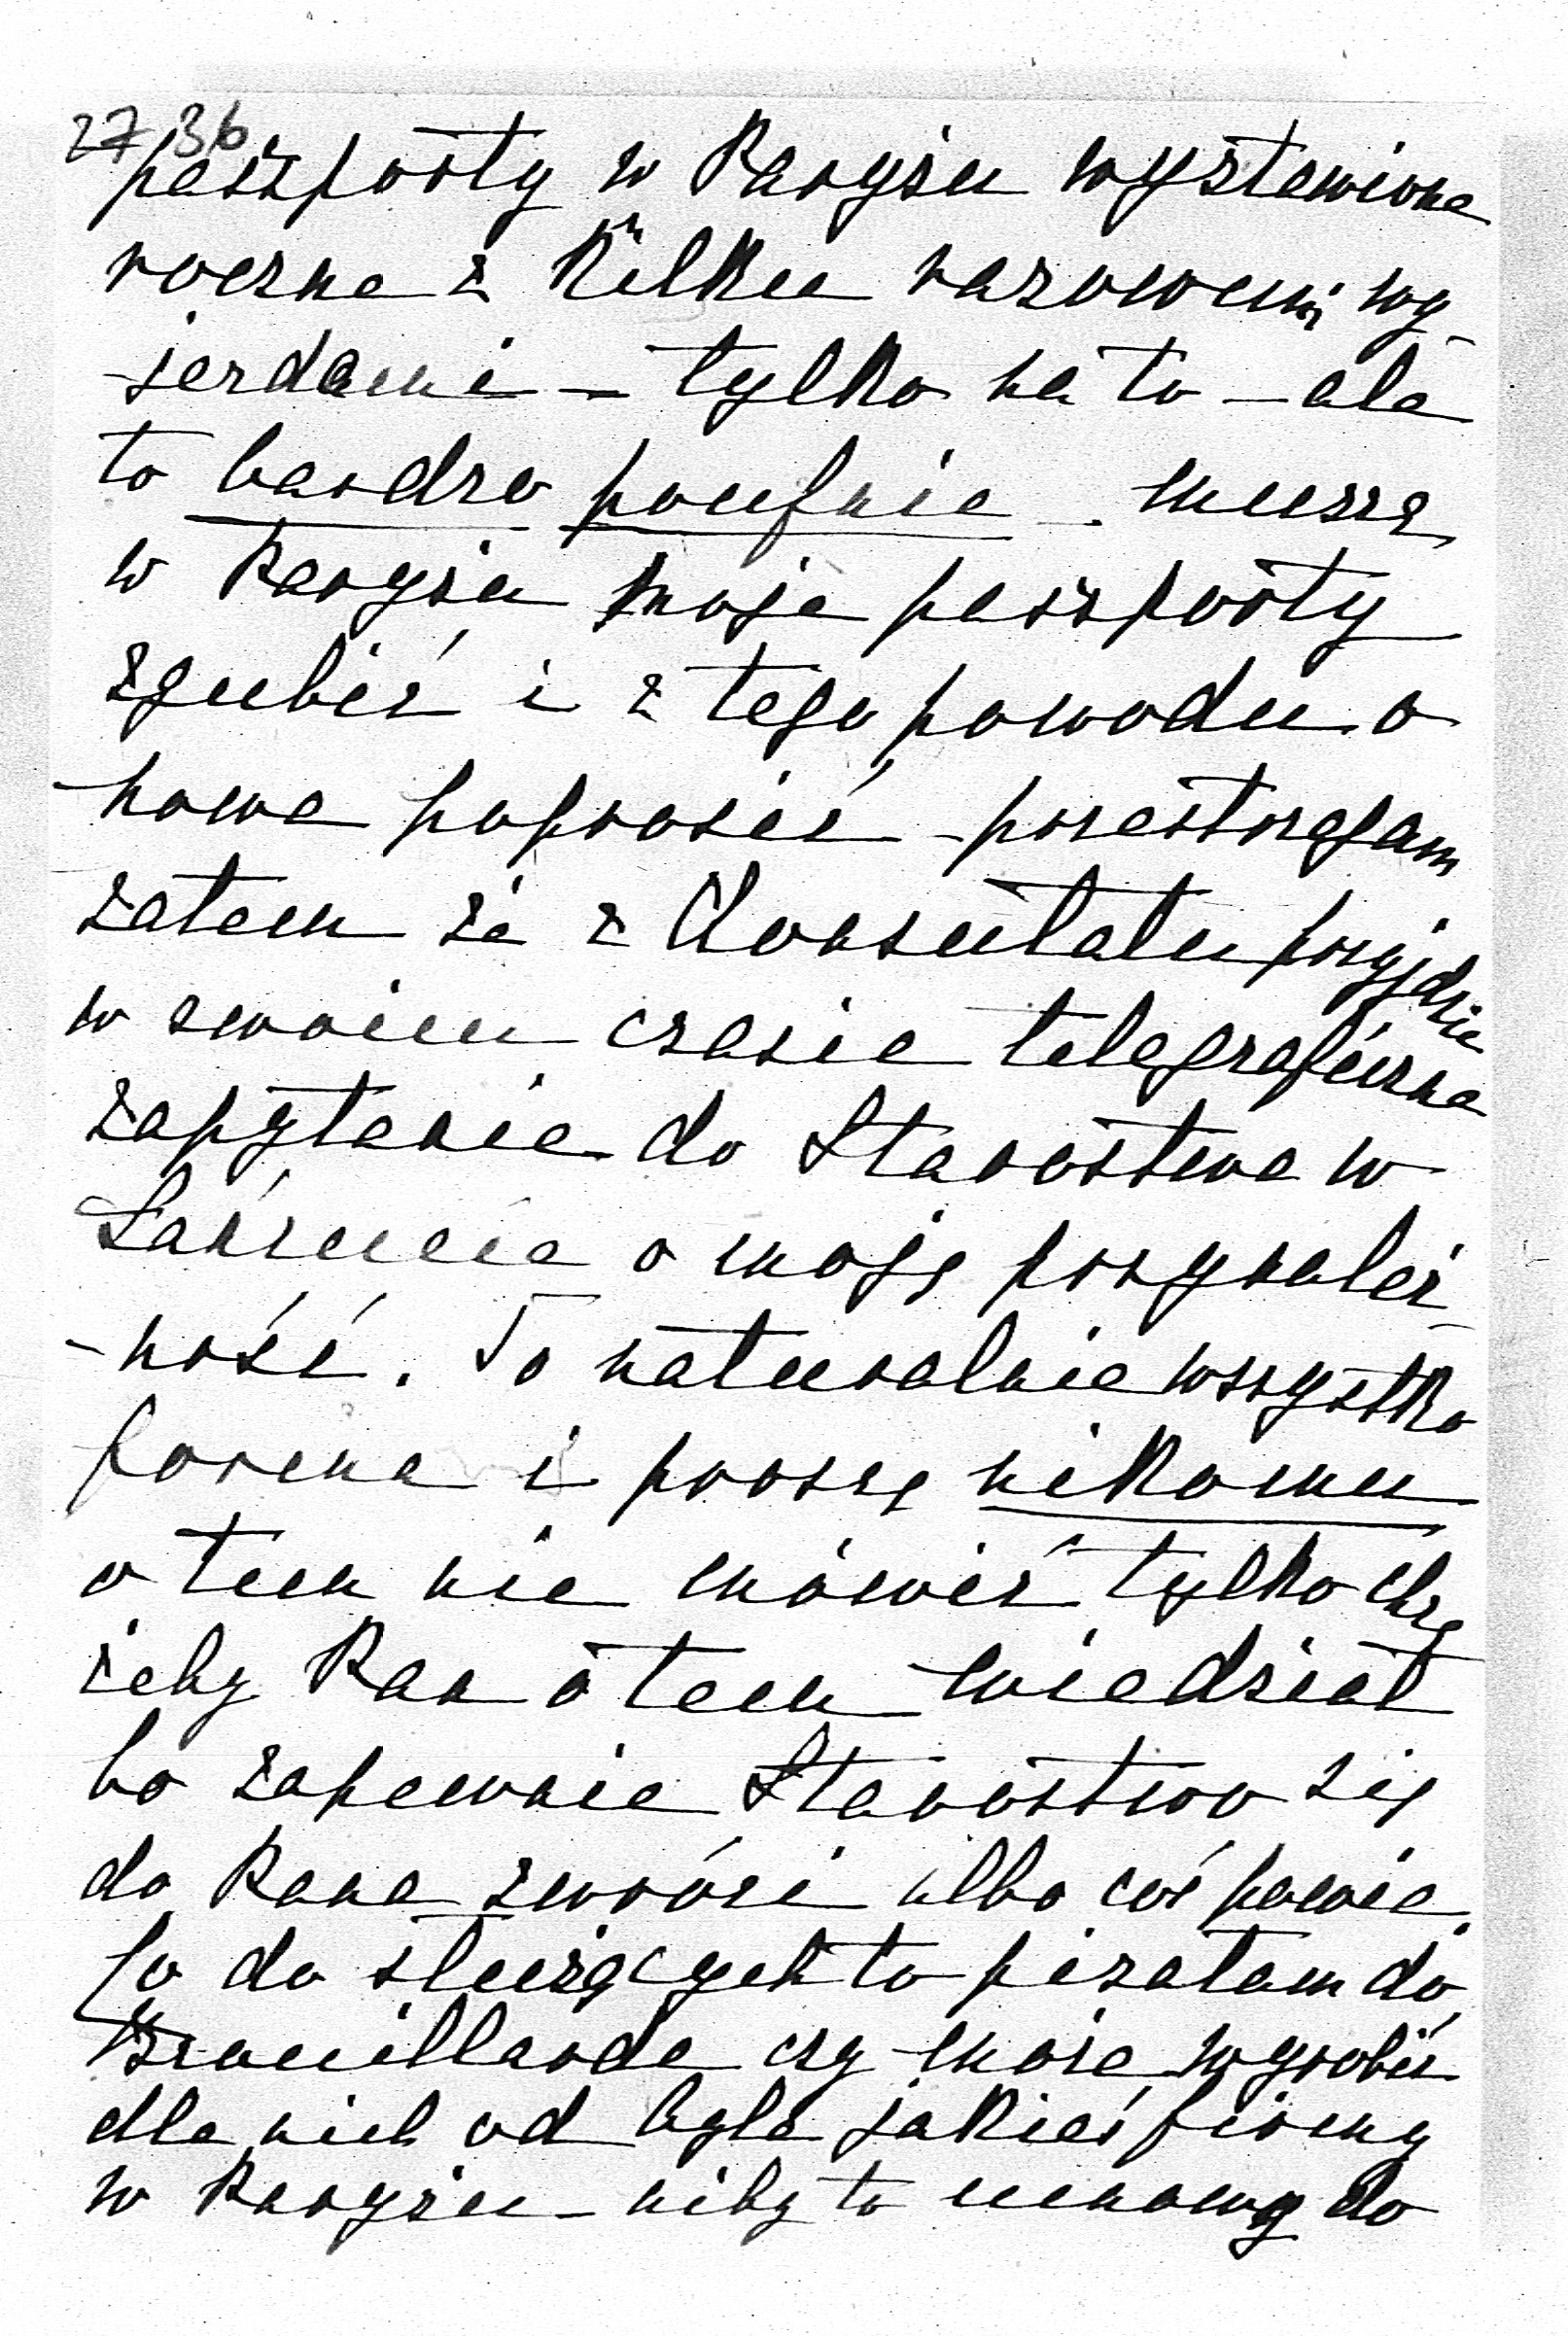 27 36
paszporty w Paryżu wystawione
roczne z kilku razowemi wy-
-jezdami – tylko na to – ale
to bardzo poufnie – muszę
w Paryżu moje paszporty
zgubić i z tego powodu o
nowe poprosić – przestrzegam
zatem że z Konsulatu przyjdzie
w swoim czasie telegraficzne
zapytanie do Starostwa w
Łańcucie o moję przynależ-
-ność. To naturalnie wszystko
forma i proszę nikomu
o tem nie mówić tylko chcę
żeby Pan o tem wiedział
bo zapewnie Starostwo się
do Pana zwróci albo coś powie.
Co do służących to pisałam do
czy może wyrobić
dla nich od byle jakiéś firmy
w Paryżu – niby to umowy do